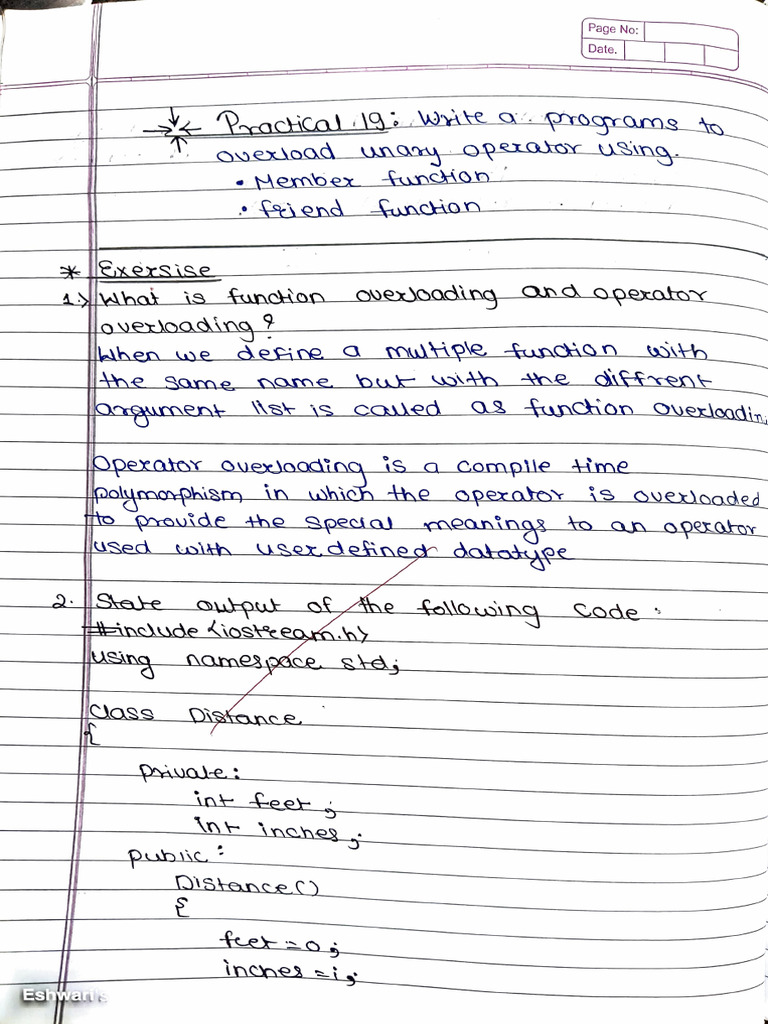 Page No:
Date.
Practical 19: Write a programs to
overload unary operator using.
• Member function
• friend function
* Exersise
1> What is function overloading and operator
overloading?
When we define a multiple function with
the same name but with the diffrent
argument list is called as function overloadin
Operator overloading is a compile time
polymorphism in which the operator is overloaded
to provide the special meanings to an operator
used with user defined datatype
2. State output of the following code:
#include <iostream.h>
using namespace std;
class Distance
{
private:
int feet;
int inches;
public:
Distance()
{
feet = 0;
inches = i;
Eshwari's